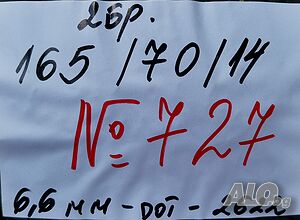 2бр.
165/70/14
№ 727
6,6 мм - DOT - 2022
ALO.bg